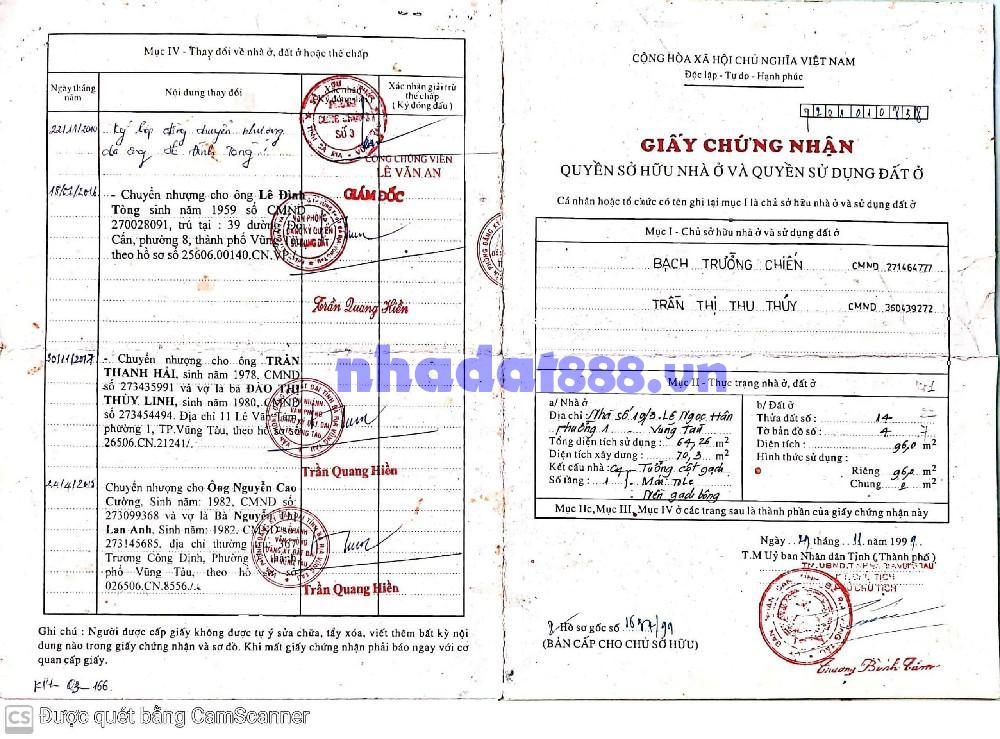 Mục IV - Thay đổi về nhà ở, đất ở hoặc thế chấp
Ngày tháng năm
Nội dung thay đổi
Xác nhận
(Ký đóng dấu)
Xác nhận giải trừ thế chấp
( Ký đóng dấu )
22/11/2010
Ký hợp đồng chuyển nhượng
SỐ 3
CÔNG CHỨNG VIÊN
LÊ VĂN AN
- Chuyển nhượng cho ông Lê Đình
Tòng sinh năm 1959 số CMND
270028091, trú tại : 39 đường
Cấn, phường 8, thành phố Vũng
theo hồ sơ số 25606.00140.CN.VP
GIÁM ĐỐC
Trần Quang Hiền
30/11/2017
- Chuyển nhượng cho ông TRẦN
THANH HẢI, sinh năm 1978, CMND
số 273435991 và vợ là bà ĐÀO THỊ
THÙY LINH, sinh năm 1980, CMND
số 273454494. Địa chỉ 11 Lê Văn
phường 1, TP.Vũng Tàu, theo hồ sơ
26506.CN.21241/.
Trần Quang Hiền
Chuyển nhượng cho Ông Nguyễn Cao
Cường, Sinh năm: 1982, CMND số:
273099368 và vợ là Bà Nguyễn Thị
Lan Anh, Sinh năm: 1982, CMND số
273145685, địa chỉ thường
Trương Công Định, Phường
phố Vũng Tàu, theo hồ sơ
026506.CN.8556./.
Trần Quang Hiền
Ghi chú : Người được cấp giấy không được tự ý sửa chữa, tẩy xóa, viết thêm bất kỳ nội
dung nào trong giấy chứng nhận và sơ đồ. Khi mất giấy chứng nhận phải báo ngay với cơ
quan cấp giấy.
CS Được quét bằng CamScanner
CỘNG HÒA XÃ HỘI CHỦ NGHĨA VIỆT NAM
Độc lập - Tự do - Hạnh phúc
GIẤY CHỨNG NHẬN
QUYỀN SỞ HỮU NHÀ Ở VÀ QUYỀN SỬ DỤNG ĐẤT Ở
Cá nhân hoặc tổ chức có tên ghi tại mục I là chủ sở hữu nhà ở và sử dụng đất ở
Mục I - Chủ sở hữu nhà ở và sử dụng đất ở
BẠCH TRƯỜNG CHIẾN CMND 271464777
TRẦN THỊ THU THỦY CMND 360439272
nhadat888.vn
Mục II - Thực trạng nhà ở, đất ở
a/ Nhà ở
Địa chỉ : Nhà số 19/3 Lê Ngọc Hân
Phường 1 - Vũng Tàu
Tổng diện tích sử dụng : 64,26 m2
Diện tích xây dựng : 70,3 m2
Kết cấu nhà : C4 - Tường cột gạch
Số tầng : 1 Mái tole
Nền gạch bông
b/ Đất ở
Thửa đất số : 14
Tờ bản đồ số : 4
Diện tích : 96,0 m2
Hình thức sử dụng :
Riêng 96,0 m2
Chung m2
Mục IIc, Mục III, Mục IV ở các trang sau là thành phần của giấy chứng nhận này
Ngày 29 tháng 11 năm 1999
T.M Uỷ ban Nhân dân Tỉnh ( Thành phố )
Trương Bình Tâm
Hồ sơ gốc số
(BẢN CẤP CHO CHỦ SỞ HỮU)